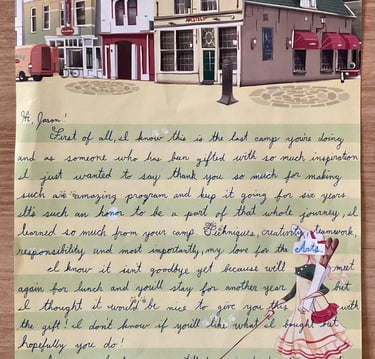 Hi, Jason!
First of all, I know this is the last camp you're doing
and as someone who has ban gifted with so much inspiration
I just wanted to say thank you so much for making
such are amazing program and keep it going for six years
It's such an honor to be a part of that whole journey, I
learned so much from your camp (techniques, creativity, teamwork,
responsibility and most importantly, my love for the Arts.
I know it isn't goodbye yet because will meet
again for lunch and you'll stay for another year but
I thought it would be nice to give you this with
the gift! I don't know if you'll like what I bought but
hopefully you do!